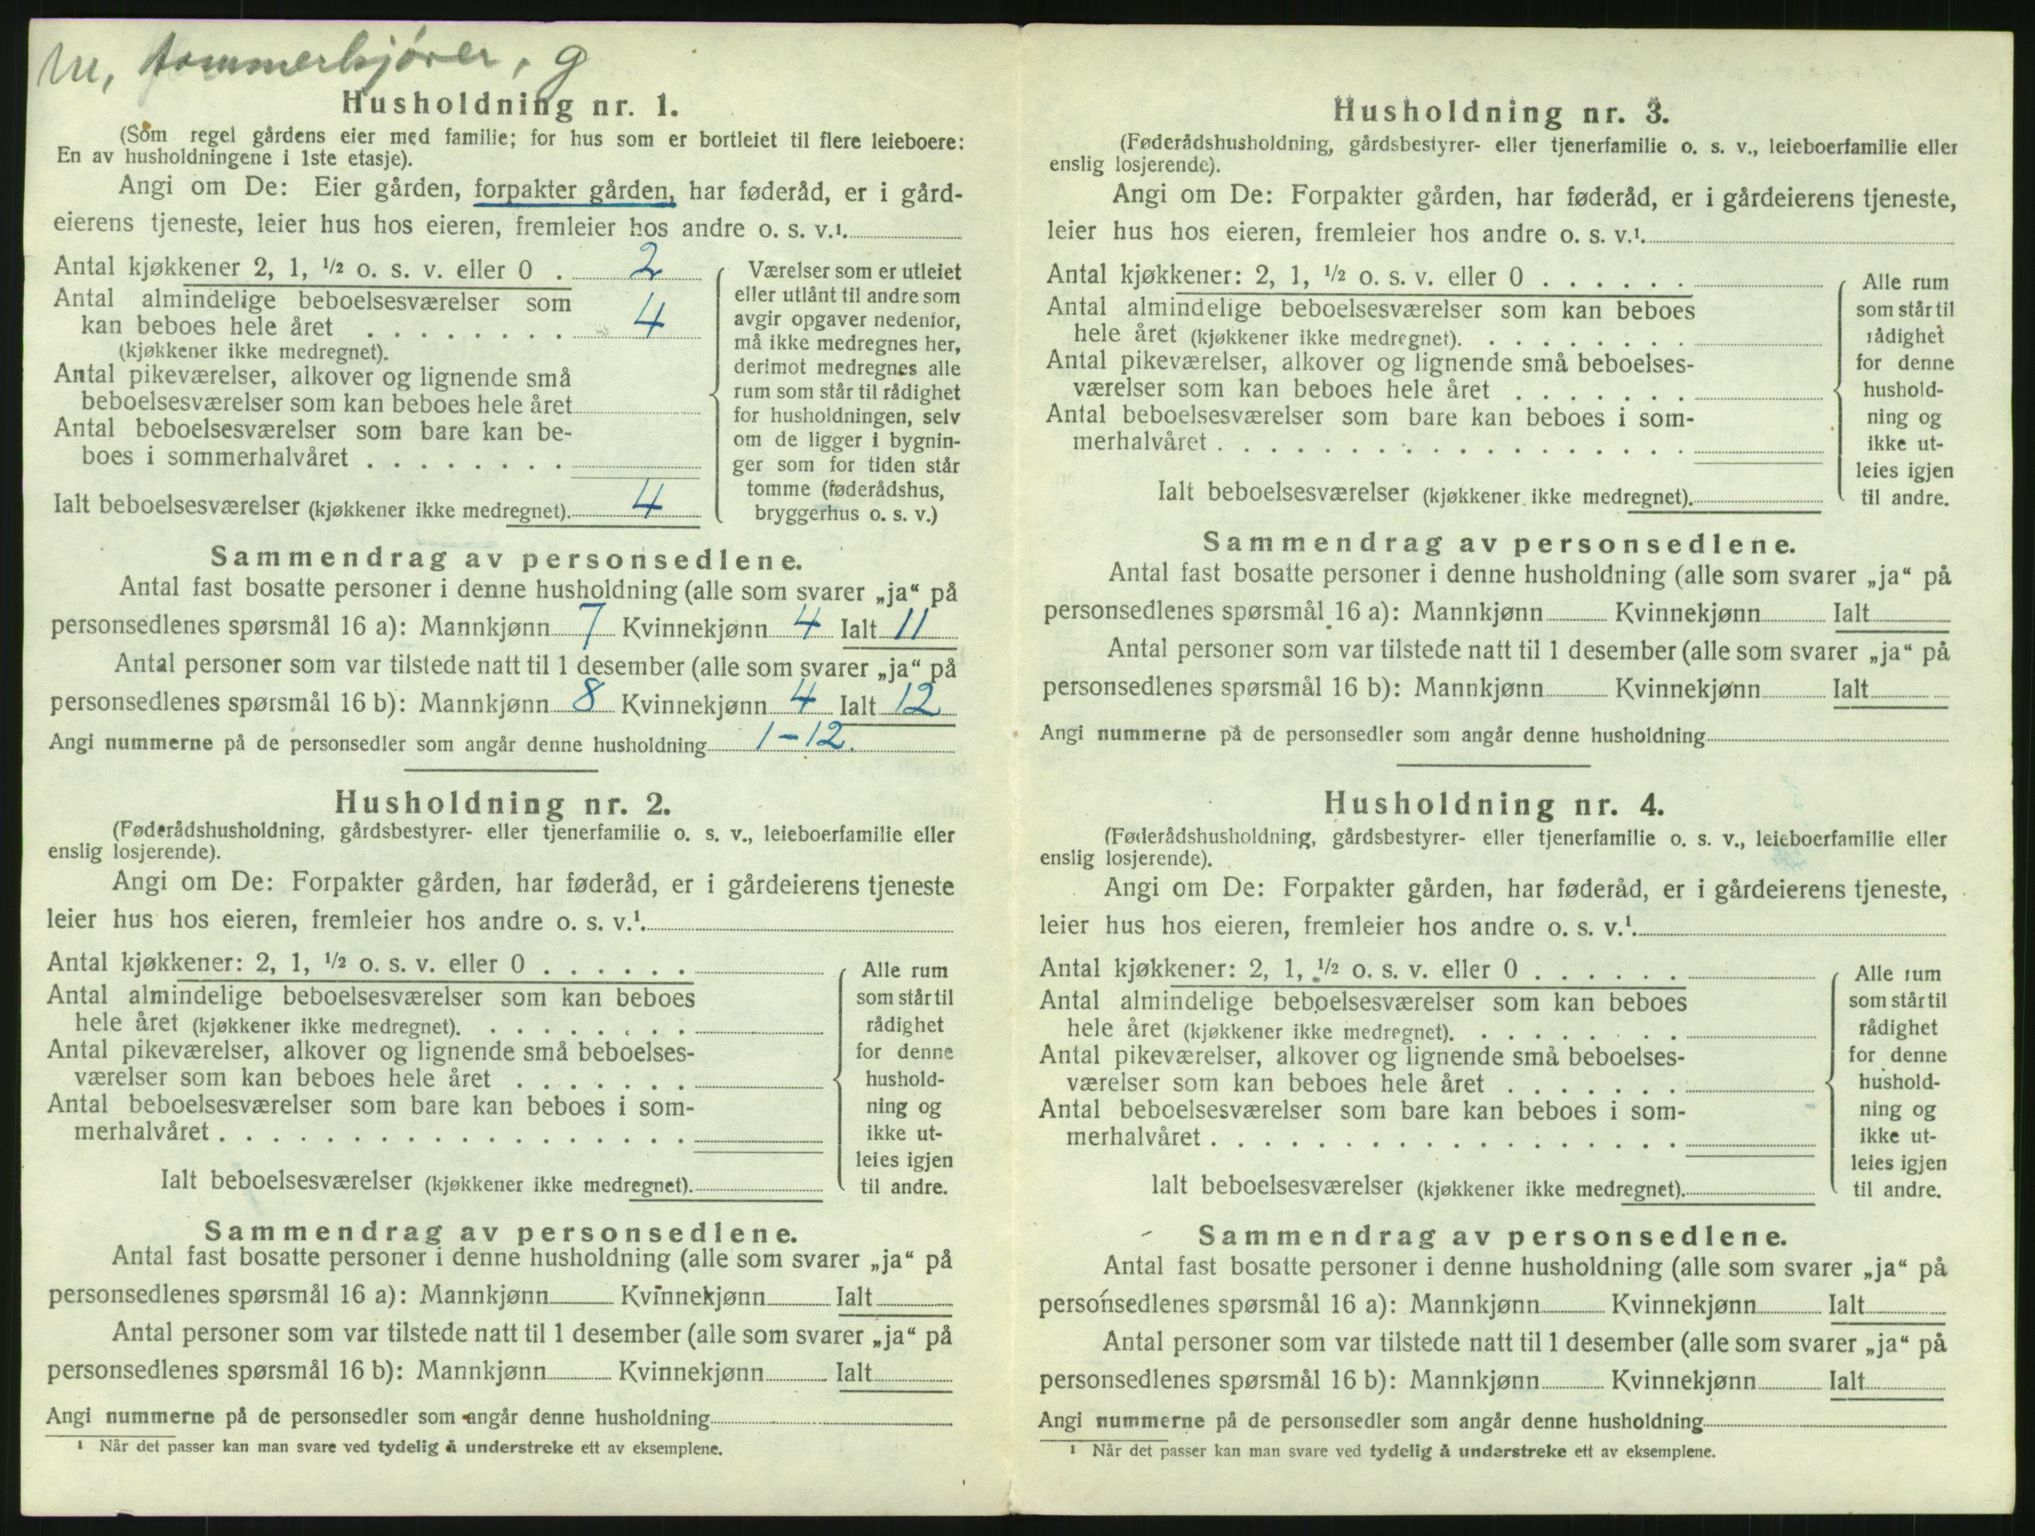 m, tømmerkjører, g
Husholdning nr. 1.
(Som regel gårdens eier med familie; for hus som er bortleiet til flere leieboere:
En av husholdningene i 1ste etasje).
Angi om De: Eier gården, forpakter gården, har føderåd, er i gård-
eierens tjeneste, leier hus hos eieren, fremleier hos andre o. s. v.¹
Antal kjøkkener 2, 1, ½ o. s. v. eller 0 . 2
Antal almindelige beboelsesværelser som
kan beboes hele året . . . . . . . 4
(kjøkkener ikke medregnet).
Antal pikeværelser, alkover og lignende små
beboelsesværelser som kan beboes hele året
Antal beboelsesværelser som bare kan be-
boes i sommerhalvåret . . . . . . .
Ialt beboelsesværelser (kjøkkener ikke medregnet). 4
Værelser som er utleiet
eller utlånt til andre som
avgir opgaver nedenfor,
må ikke medregnes her,
derimot medregnes alle
rum som står til rådighet
for husholdningen, selv
om de ligger i bygnin-
ger som for tiden står
tomme (føderådshus,
bryggerhus o. s. v.)
Sammendrag av personsedlene.
Antal fast bosatte personer i denne husholdning (alle som svarer „ja“ på
personsedlenes spørsmål 16 a): Mannkjønn 7 Kvinnekjønn 4 Ialt 11
Antal personer som var tilstede natt til 1 desember (alle som svarer „ja“ på
personsedlenes spørsmål 16 b): Mannkjønn 8 Kvinnekjønn 4 Ialt 12
Angi nummerne på de personsedler som angår denne husholdning 1-12.
Husholdning nr. 2.
(Føderådshusholdning, gårdsbestyrer- eller tjenerfamilie o. s. v., leieboerfamilie eller
enslig losjerende).
Angi om De: Forpakter gården, har føderåd, er i gårdeierens tjeneste
leier hus hos eieren, fremleier hos andre o. s. v.¹.
Antal kjøkkener: 2, 1, ½ o. s. v. eller 0 . . . . . .
Antal almindelige beboelsesværelser som kan beboes
hele året (kjøkkener ikke medregnet). . . . . . . . .
Antal pikeværelser, alkover og lignende små beboelses-
værelser som kan beboes hele året . . . . . . .
Antal beboelsesværelser som bare kan beboes i som-
merhalvåret . . . . . . . . . . . . . . . . . .
Ialt beboelsesværelser (kjøkkener ikke medregnet).
Alle rum
som står til
rådighet
for denne
hushold-
ning og
ikke ut-
leies igjen
til andre.
Sammendrag av personsedlene.
Antal fast bosatte personer i denne husholdning (alle som svarer „ja“ på
personsedlenes spørsmål 16 a): Mannkjønn Kvinnekjønn Ialt
Antal personer som var tilstede natt til 1 desember (alle som svarer „ja“ på
personsedlenes spørsmål 16 b): Mannkjønn Kvinnekjønn Ialt
Angi nummerne på de personsedler som angår denne husholdning
¹ Når det passer kan man svare ved tydelig å understreke ett av eksemplene.
Husholdning nr. 3.
(Føderådshusholdning, gårdsbestyrer- eller tjenerfamilie o. s. v., leieboerfamilie eller
enslig losjerende).
Angi om De: Forpakter gården, har føderåd, er i gårdeierens tjeneste,
leier hus hos eieren, fremleier hos andre o. s. v.¹.
Antal kjøkkener: 2, 1, ½ o. s. v. eller 0 . . . . . .
Antal almindelige beboelsesværelser som kan beboes
hele året (kjøkkener ikke medregnet). . . . . . . . .
Antal pikeværelser, alkover og lignende små beboelses-
værelser som kan beboes hele året . . . . . . .
Antal beboelsesværelser som bare kan beboes i som-
merhalvåret . . . . . . . . . . . . . . . . . .
Ialt beboelsesværelser (kjøkkener ikke medregnet).
Alle rum
som står til
rådighet
for denne
hushold-
ning og
ikke ut-
leies igjen
til andre.
Sammendrag av personsedlene.
Antal fast bosatte personer i denne husholdning (alle som svarer „ja“ på
personsedlenes spørsmål 16 a): Mannkjønn Kvinnekjønn Ialt
Antal personer som var tilstede natt til 1 desember (alle som svarer „ja“ på
personsedlenes spørsmål 16 b): Mannkjønn Kvinnekjønn Ialt
Angi nummerne på de personsedler som angår denne husholdning
Husholdning nr. 4.
(Føderådshusholdning, gårdsbestyrer- eller tjenerfamilie o. s. v., leieboerfamilie eller
enslig losjerende).
Angi om De: Forpakter gården, har føderåd, er i gårdeierens tjeneste,
leier hus hos eieren, fremleier hos andre o. s. v.¹.
Antal kjøkkener: 2, 1, ½ o. s. v. eller 0 . . . . . .
Antal almindelige beboelsesværelser som kan beboes
hele året (kjøkkener ikke medregnet). . . . . . . . .
Antal pikeværelser, alkover og lignende små beboelses-
værelser som kan beboes hele året . . . . . . .
Antal beboelsesværelser som bare kan beboes i som-
merhalvåret . . . . . . . . . . . . . . . . . .
Ialt beboelsesværelser (kjøkkener ikke medregnet).
Alle rum
som står til
rådighet
for denne
hushold-
ning og
ikke ut-
leies igjen
til andre.
Sammendrag av personsedlene.
Antal fast bosatte personer i denne husholdning (alle som svarer „ja“ på
personsedlenes spørsmål 16 a): Mannkjønn Kvinnekjønn Ialt
Antal personer som var tilstede natt til 1 desember (alle som svarer „ja“ på
personsedlenes spørsmål 16 b): Mannkjønn Kvinnekjønn Ialt
Angi nummerne på de personsedler som angår denne husholdning
¹ Når det passer kan man svare ved tydelig å understreke ett av eksemplene.